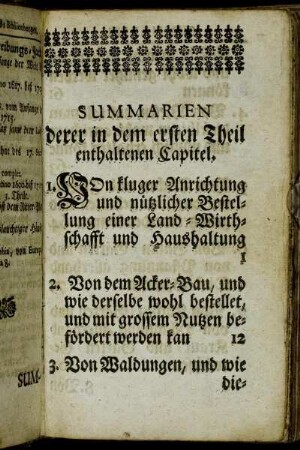 ribungs-
1715.
3. Theile.
SUM-
SUMMARIEN
derer in dem ersten Theil
enthaltenen Capitel.
1. Von kluger Anrichtung
und nützlicher Bestel-
lung einer Land-Wirth-
schafft und Haushaltung
1
2. Von dem Acker-Bau, und
wie derselbe wohl bestellet,
und mit grossem Nutzen be-
fördert werden kan 12
3. Von Waldungen, und wie
die-